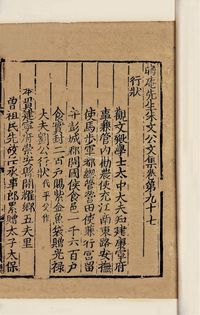 晦庵先生朱文公文集卷第九十七
行狀
觀文殿學士太中大夫知建康軍府
事兼管內勸農使充江南東路安撫
使馬步軍都總管營田使兼行宮留
守彭城郡開國侯食邑一千六百戶
食實封二百戶賜紫金魚袋贈光祿
大夫劉公行狀代平父作
本貫建寧府崇安縣開耀鄉五夫里
曾祖民先故任承事郎累贈太子太保